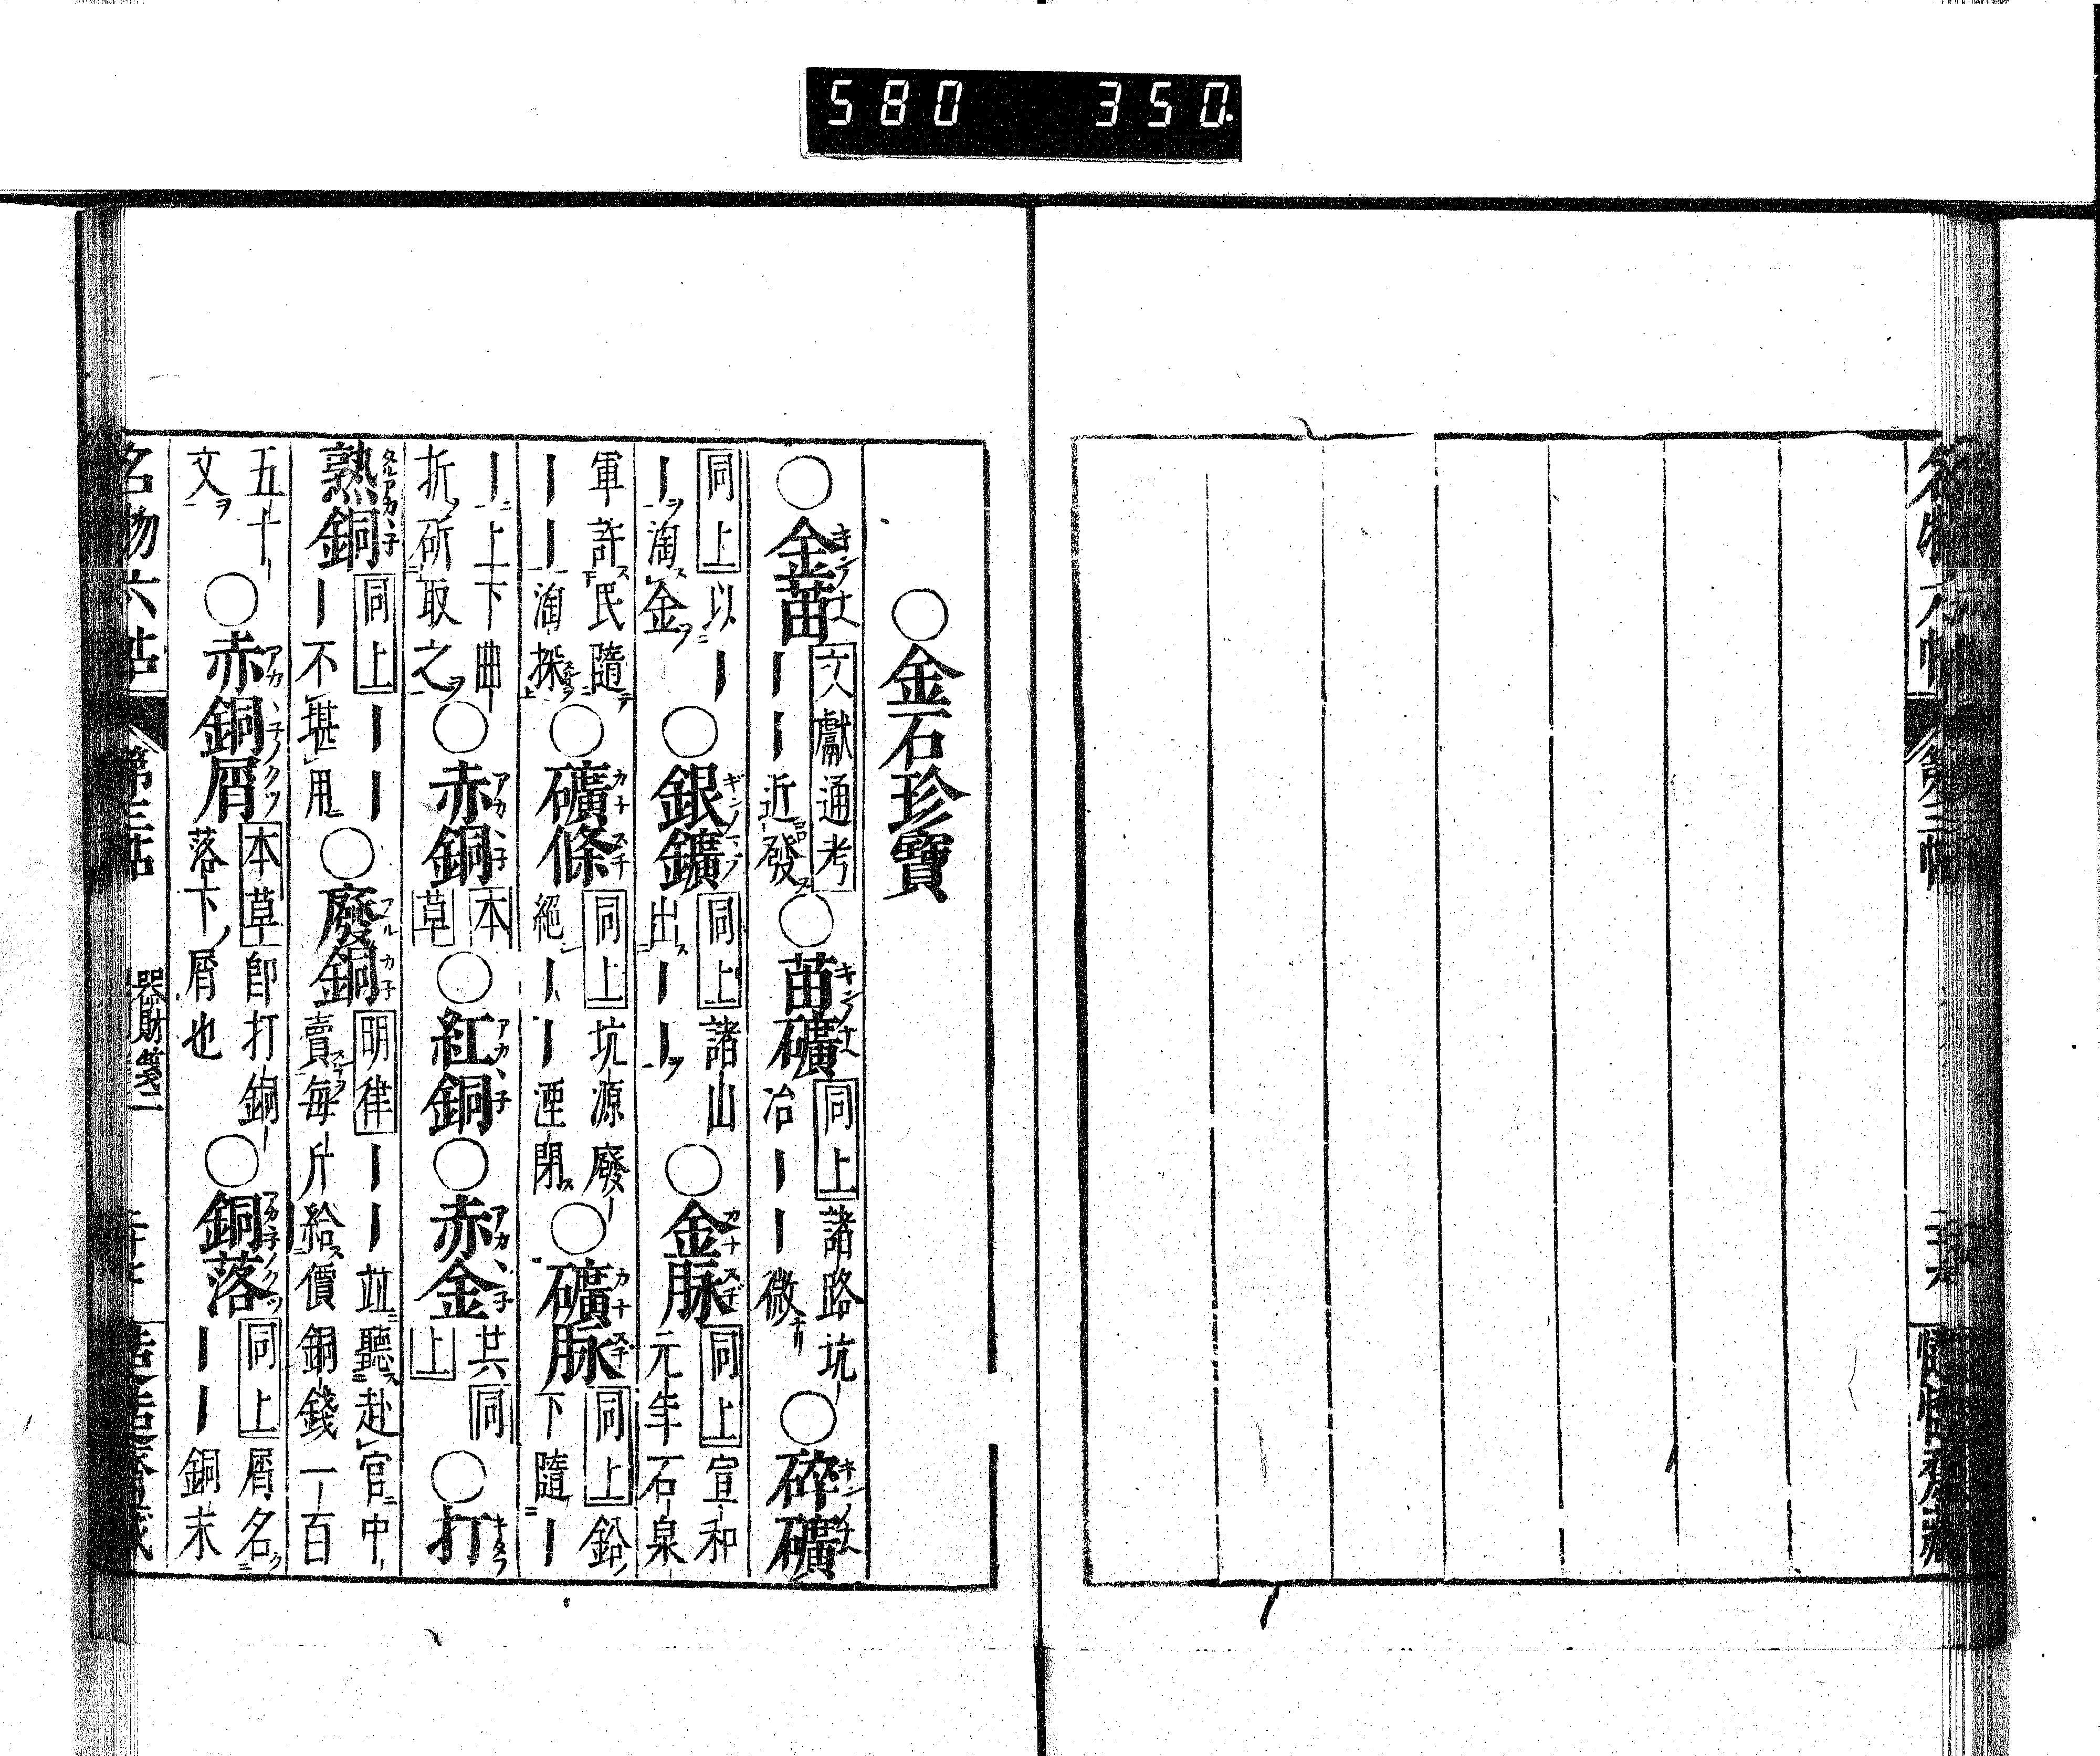 580 350.
名物六帖 第三帖 二十六
○金石珍寶
○金苗 文獻通考 ｜｜近發 ○苗礦 同上 諸路坑冶｜｜微 ○碎礦
同上 以｜淘金 ○銀鑛 同上 諸山出｜｜ ○金脉 同上 宣和元年石泉
軍許民隨｜｜淘採 ○礦條 同上 坑源廢絕｜｜湮閉 ○礦脉 同上 鉛下隨｜
｜上下曲折斫取之 ○赤銅 本草 ○紅銅 ○赤金 共同上 ○打
熟銅 同上 ｜｜｜不堪用 ○廢銅 明律 ｜｜並聽赴官中賣每斤給價銅錢一百
五十文 ○赤銅屑 本草 卽打銅落下屑也 ○銅落 同上 屑名｜｜銅末
名物六帖 第三帖 器財箋二 二十七